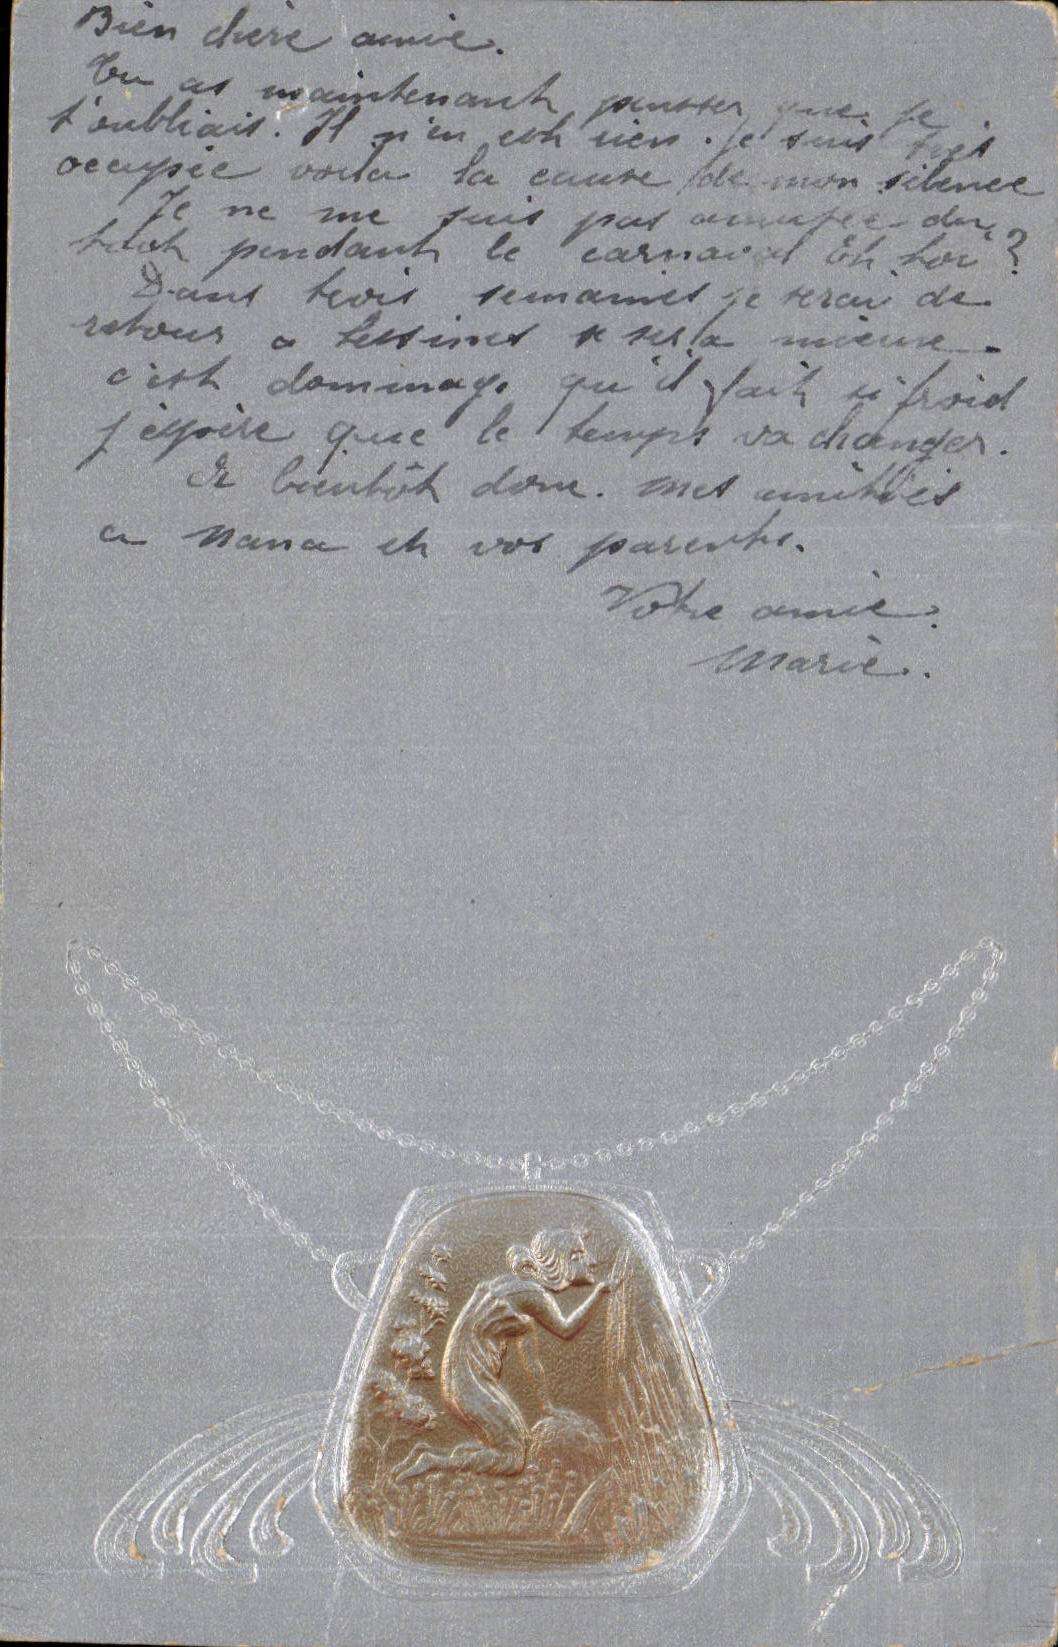 Bien chère amie.
Tu as maintenant pensser que je
t'oubliais. Il n'en est rien. je suis très
occupée voila la cause de mon silence
Je ne me suis pas amusée du
tout pendant le carnaval Et toi?
Dans trois semaines je serai de
retour a se sera mieux.
c'est dommage qu'il fait si froid
j'éspère que le temps va changer.
A bientôt donc. mes amitiés
a Nana et vos parents.
Votre amie.
Marie.